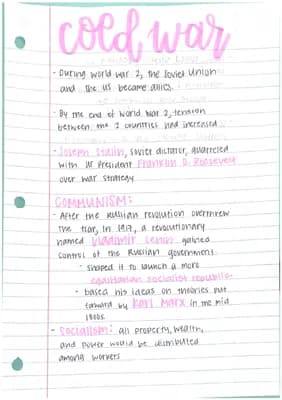 cold war
· During world war 2, the Soviet Union
and the US became allies.
· By the end of World War 2, tension
between the 2 countries had increased
· Joseph Stalin, soviet dictator, quarreled
with US President Franklin D. Roosevelt
over war strategy.
COMMUNISM:
· After the Russian revolution overthrew
the tsar, in 1917, a revolutionary
named Vladimir Lenin gained
control of the Russian government.
· shaped it to launch a more
egalitarian socialist republic.
· based his ideas on theories put
forward by Karl Marx in the mid
1800s.
· Socialism: all property, wealth,
and power would be distributed
among workers